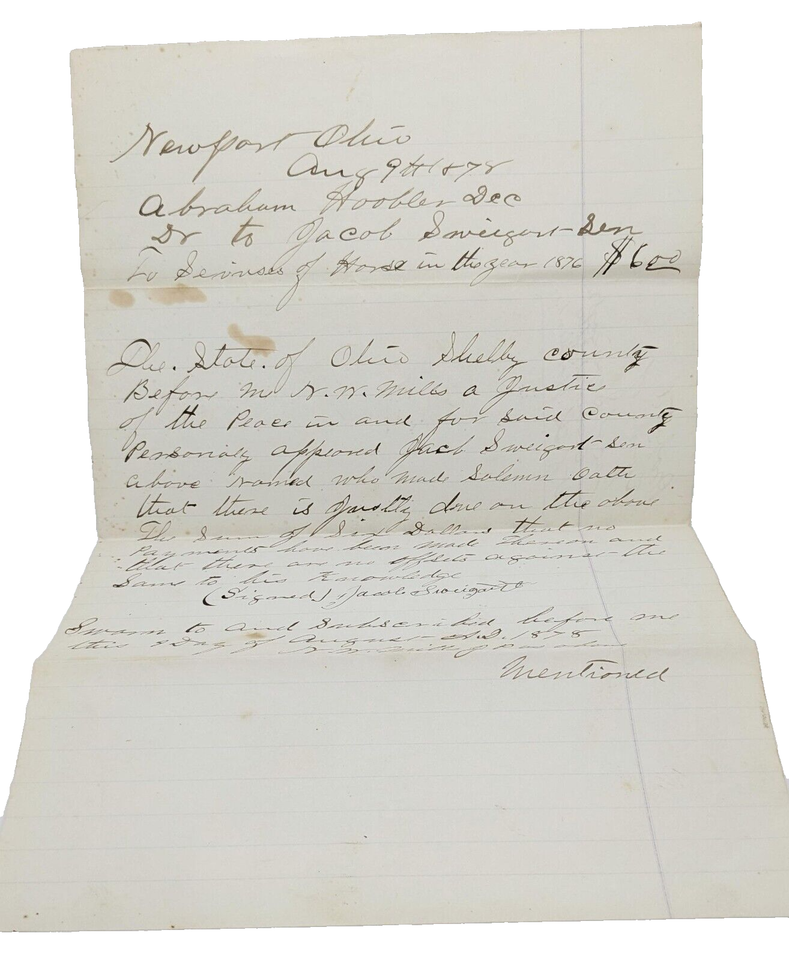 Newport Ohio
Aug 9th 1878
Abraham Hoobler Dec
Dr to Jacob Sweigart Sen
To Services of Horse in the year 1876 $6.00
The. State. of Ohio Shelby county
Before me N. W. Mills a Justice
of the Peace in and for said County
Personaly appeared Jacb Sweigart Sen
above named who made Solemn Oath
that there is Justly due on the above
The Sum of Six Dollars that no
Payments have been made Thereon and
that there are no offsets against the
Same to his Knowledge
(Signed) Jacob Sweigart
Sworn to and Subscribed before me
this Day of August A.D. 1878
Mentioned